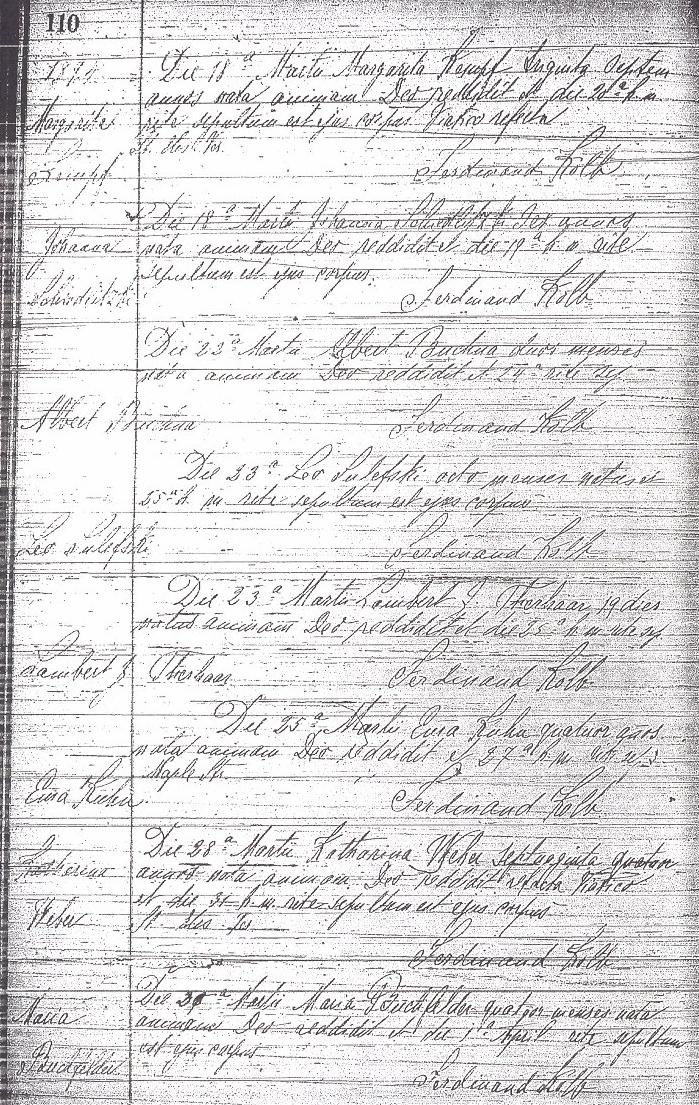 110
Die 18ª Martii Margarita Kempf triginta septem
annos nata animam Deo reddidit et die 20ª h m
Margarita rite sepultum est ejus corpus Viatico refecta
Kempf Ferdinand Kolb
Die 18ª Martii Johanna sex annos
Johanna nata animam Deo reddidit et die 19ª h m rite
sepultum est ejus corpus.
Ferdinand Kolb
Die 23ª Martii Albert Buchna duos menses
nata animam Deo reddidit et 24ª rite sep
Albert Buchna Ferdinand Kolb
Die 23ª Leo Sulefski octo menses natus et
25ª h m rite sepultum est ejus corpus
Leo Sulefski Ferdinand Kolb
Die 23ª Martii Lambert J. Therhaar 19 dies
natus animam Deo reddidit et die 25ª h m rite sep
Lambert J Therhaar Ferdinand Kolb
Die 25ª Martii Emma Kuhn quatuor años
nata animam Deo reddidit et 27ª h m rite sep
Maple Str.
Emma Kuhn Ferdinand Kolb
Die 28ª Martii Katharina Weber septuaginta quatuor
Katherina annos nata animam Deo reddidit refecta Viatico
et die 31 h m rite sepultum est ejus corpus
Weber
Ferdinand Kolb
Die Martii Maria Buchfelder quatuor menses nata
Maria animam Deo reddidit et die 1ª April rite sepultum
est ejus corpus
Buchfelder Ferdinand Kolb